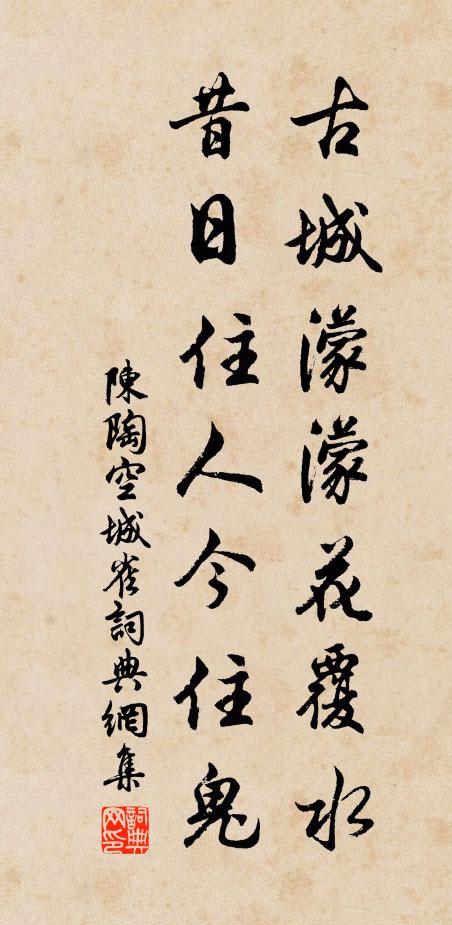 古城濛濛花覆水
昔日住人今住鬼
陳陶空城雀詞典網集
詞典網印